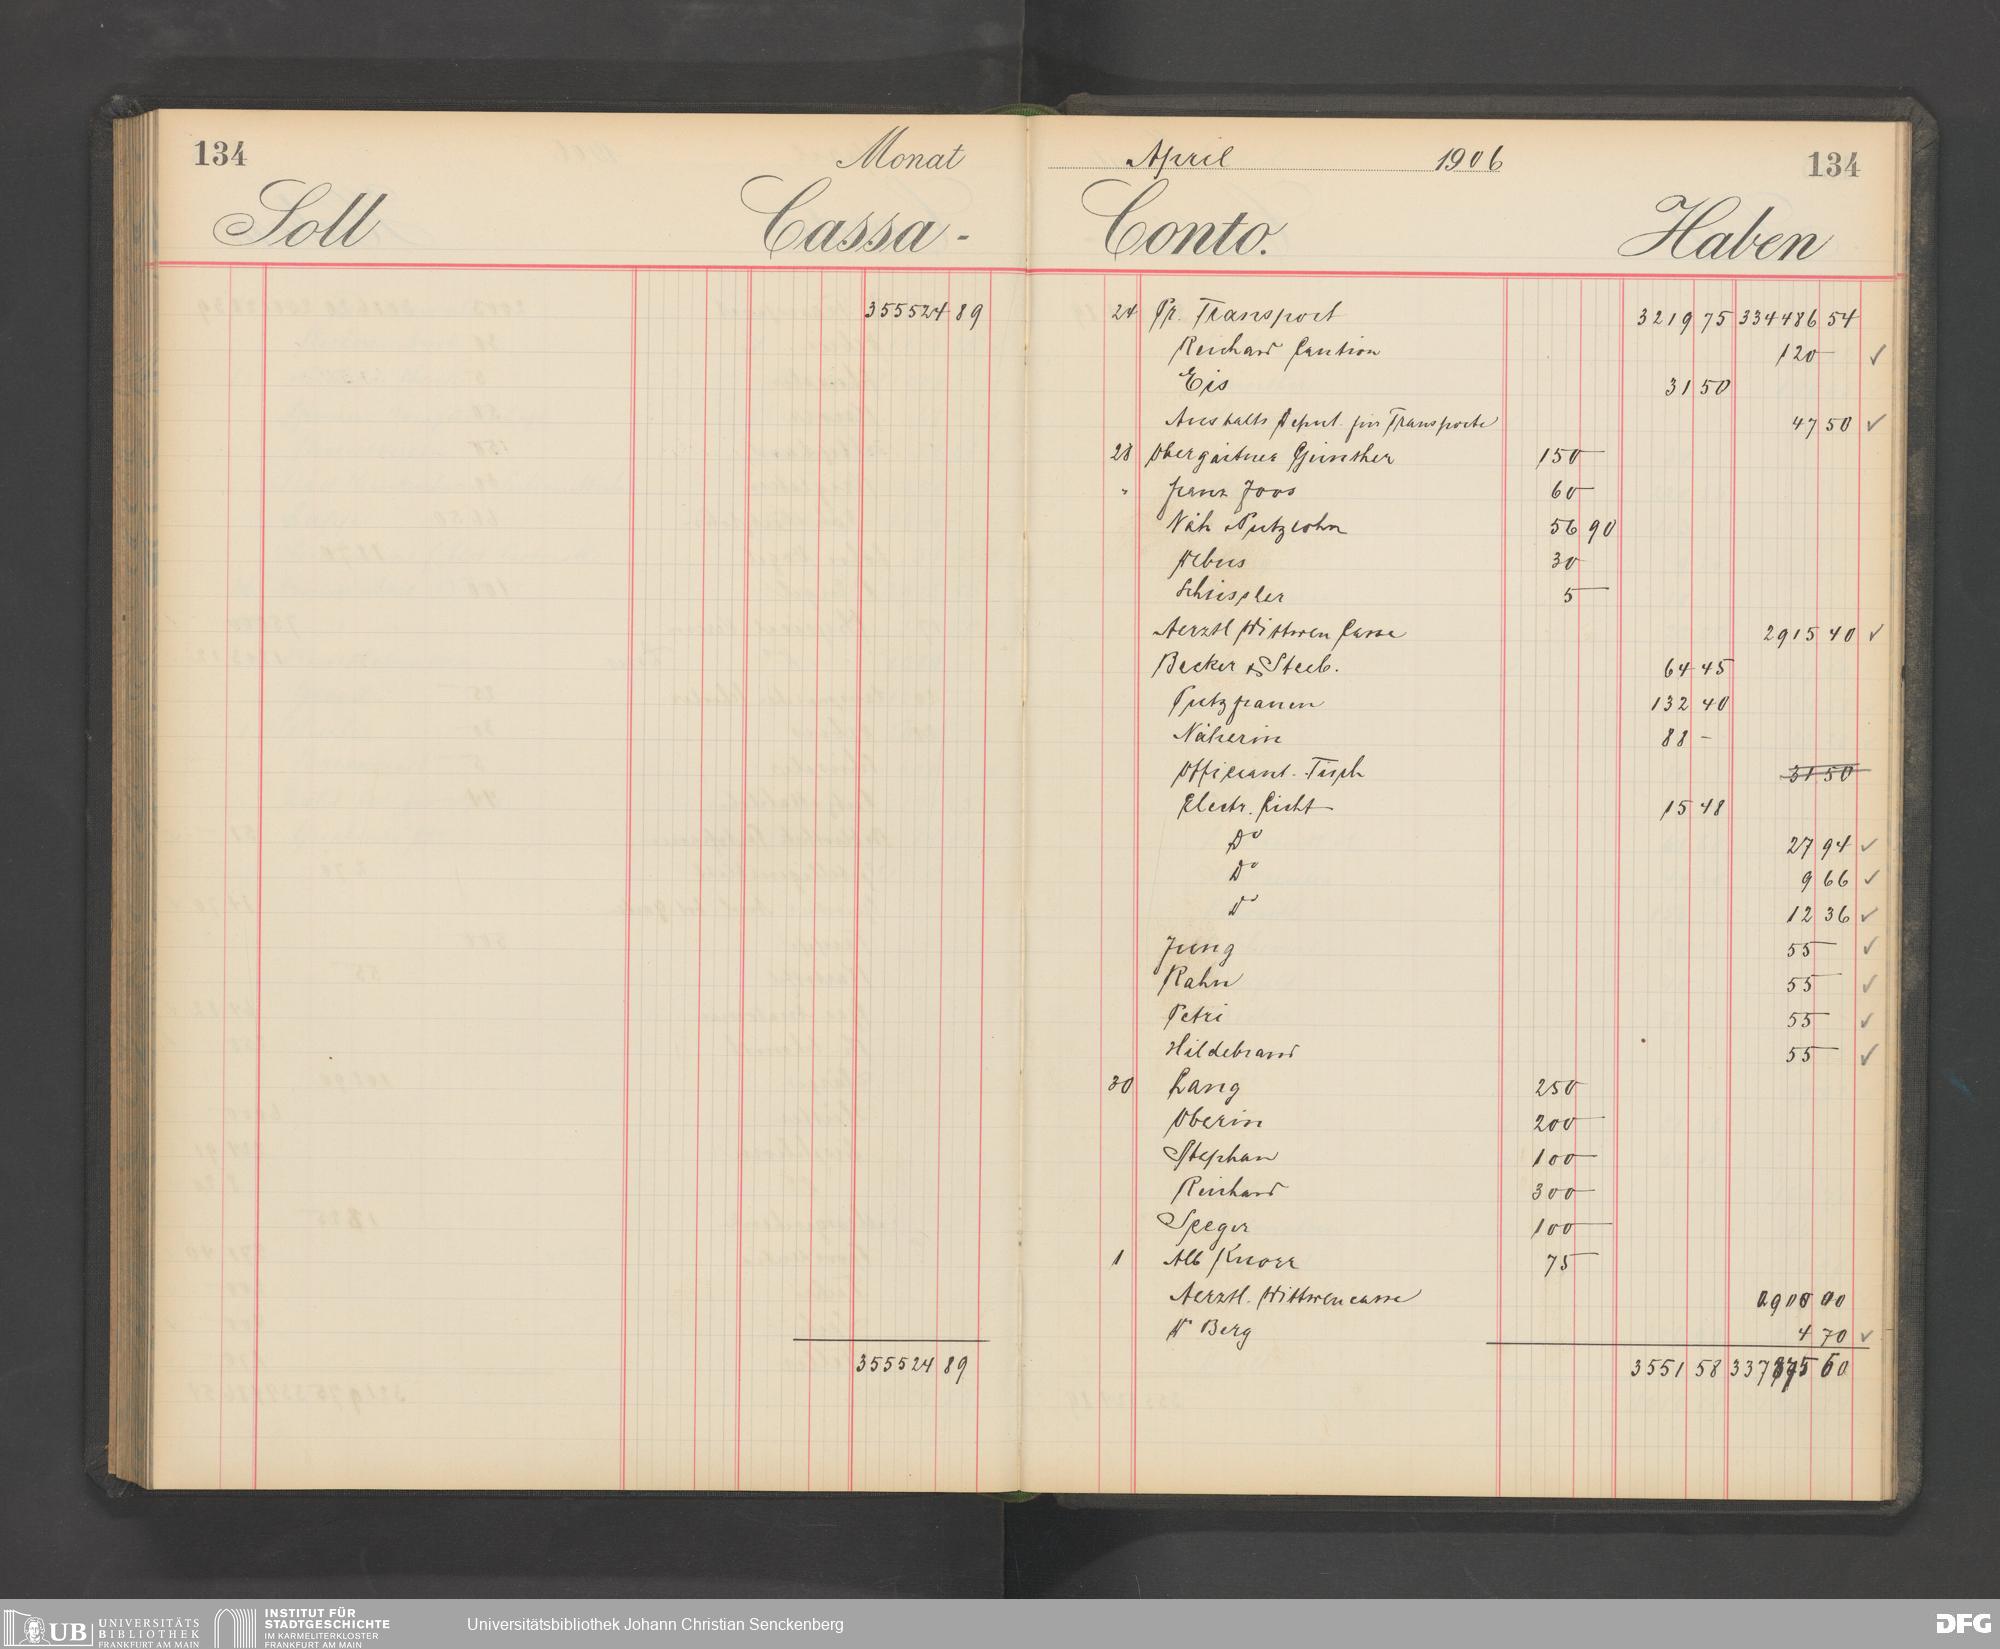 134
Monat
Soll
Cassa-
355524 89
355524 89
April 1906
134
Conto.
Haben
24 Pr. Transport 3219 75 334486 54
Reichard Caution 120 — ✓
Eis 31 50
Anstalts Deput. für Transporte 47 50 ✓
28 Obergärtner Günther 150 —
" Franz Joos 60 —
Näh & Putzlohn 56 90
Debus 30 —
Schissler 5 —
Aerztl Wittwen Casse 2915 40 ✓
Becker & Steeb. 64 45
Putzfrauen 132 40
Näherin 88 -
Officiant. Tisch 31 50
Electr. Licht 15 48
Do 27 94 ✓
Do 9 66 ✓
Do 12 36 ✓
Jung 55 — ✓
Rahn 55 — ✓
Petri 55 — ✓
Hildebrand 55 — ✓
30 Lang 250 —
Oberin 200 —
Stephan 100 —
Reichard 300 —
Seeger 100 —
1 Alb Knorr 75 —
Aerztl. Wittwencasse
Dr Berg 4 70 ✓
3551 58
UB UNIVERSITÄTS
BIBLIOTHEK
FRANKFURT AM MAIN
INSTITUT FÜR
STADTGESCHICHTE
IM KARMELITERKLOSTER
FRANKFURT AM MAIN
Universitätsbibliothek Johann Christian Senckenberg
DFG